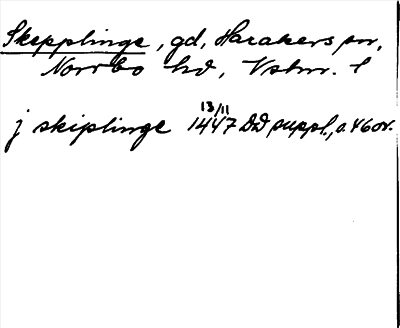 Skepplinge, gd, Harakers sn,
Norrbo hd, Vstm. l
13/11
j skiplinge 1447 Dd suppl., s. 46 or.